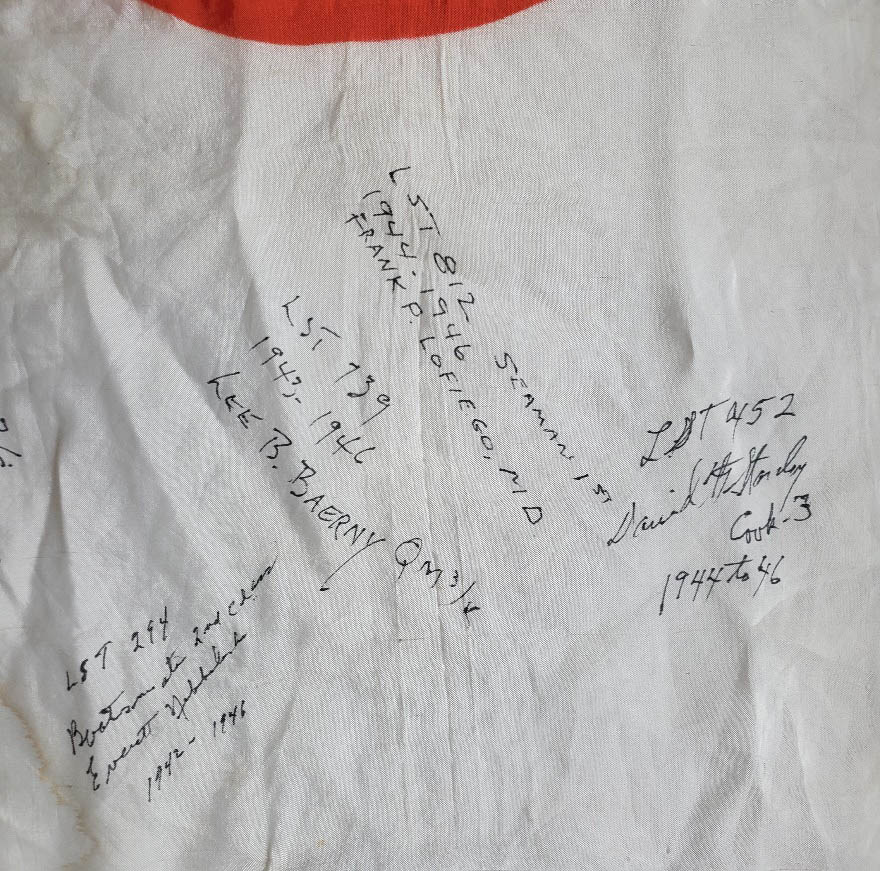 LST 812
1944-1946
FRANK P. LOFIEGO, MD
SEAMAN 1ST
LST 739
1943-1946
LEE B. BAERNY QM 3/c
LST 452
David H.
Cook-3
1944 to 46
LST 294
Boatsmate 2nd Class
Everett
1942-1946